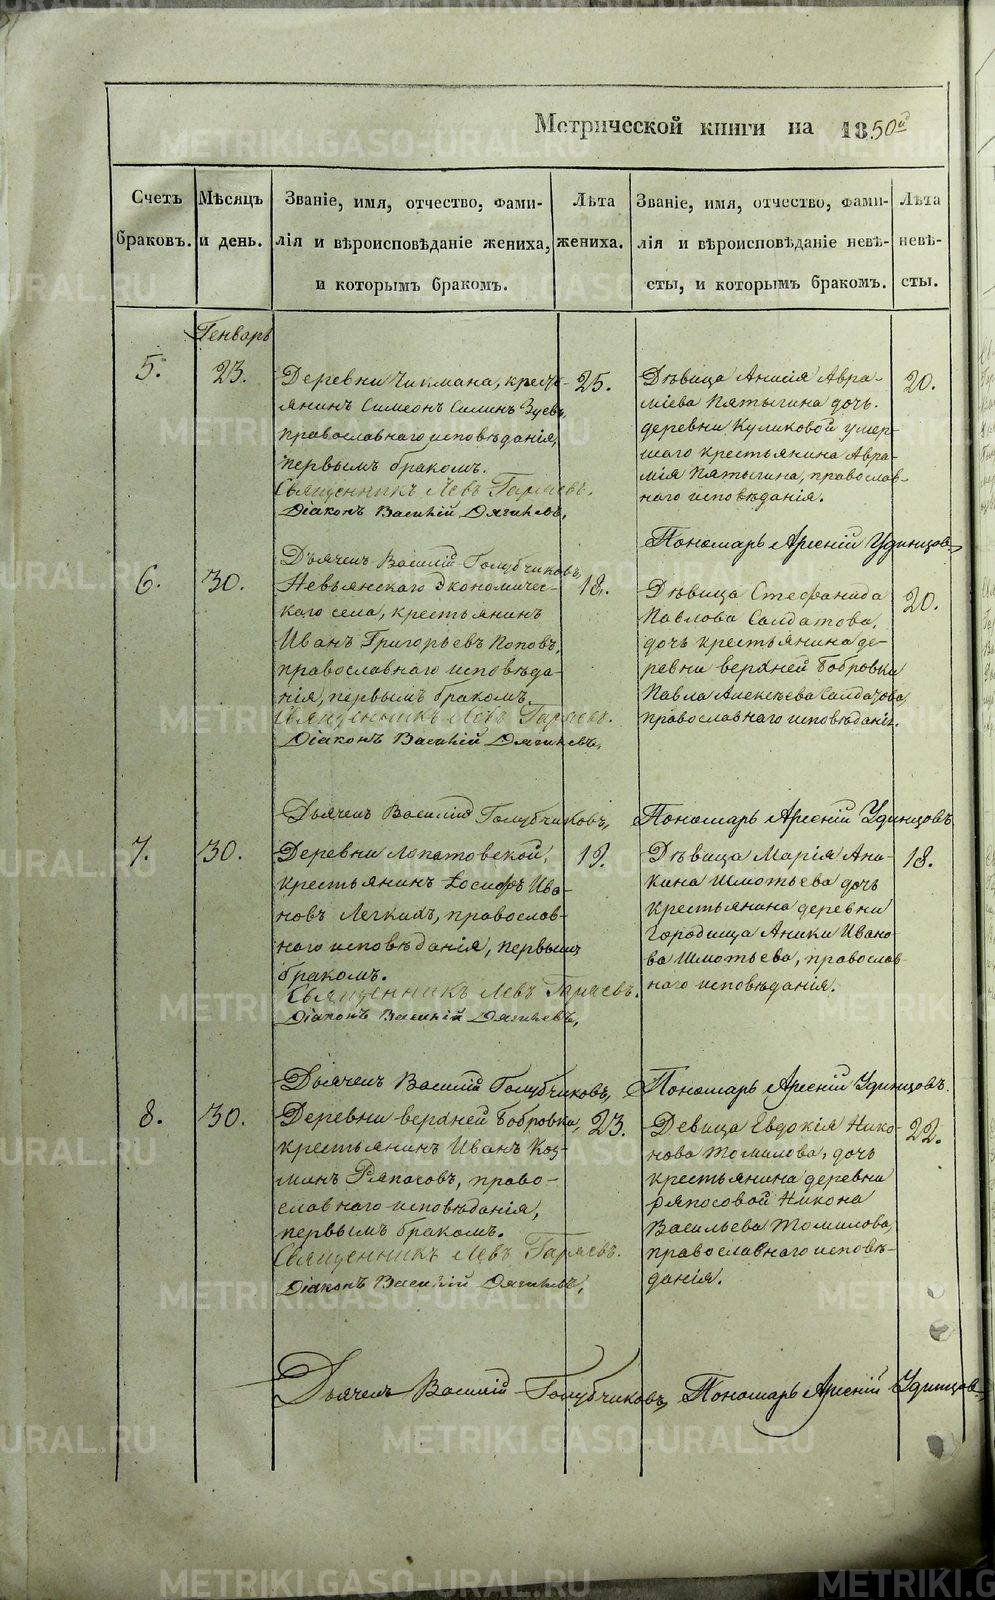 Метрической книги на 1850й
Счетъ браковъ.
Мѣсяцъ и день.
Званіе, имя, отчество, фами-
лія и вѣроисповѣданіе жениха,
и которымъ бракомъ.
Лѣта жениха.
Званіе, имя, отчество, фами-
лія и вѣроисповѣданіе невѣ-
сты, и которымъ бракомъ.
Лѣта невѣ-
сты.
Генварь
5.
23.
Деревни Чикмана, кресть-
янинъ Симеонъ Силинъ Зуевъ,
православнаго исповѣданія,
первымъ бракомъ.
Священникъ Левъ Гаряевъ.
Діаконъ Василій Дягилевъ,
Дьячекъ Василій Голубчиковъ,
25.
Дѣвица Анисія Авра-
міева Пятыгина дочь
деревни Куликовой умер-
шаго крестьянина Авра-
мія Пятыгина, православ-
наго исповѣданія.
Пономарь Арсеній Удинцовъ
20.
6.
30.
Невьянскаго Экономичес-
каго села, крестьянинъ
Иванъ Григорьевъ Поповъ,
православнаго исповѣда-
нія, первымъ бракомъ.
Священникъ Левъ Гаряевъ.
Діаконъ Василій Дягилевъ,
Дьячекъ Василій Голубчиковъ,
18.
Дѣвица Стефанида
Павлова Салдатова,
дочь крестьянина де-
ревни верхней Бобровки
Павла Алексѣева Салдатова,
православнаго исповѣданія.
Пономарь Арсеній Удинцовъ
20.
7.
30.
Деревни Лопатовской,
крестьянинъ Іосифъ Ива-
новъ Легкихъ, православ-
наго исповѣданія, первымъ
бракомъ.
Священникъ Левъ Гаряевъ.
Діаконъ Василій Дягилевъ,
Дьячекъ Василій Голубчиковъ,
19.
Дѣвица Марія Ани-
кина Шмотьева дочь
крестьянина деревни
Городища Аники Ивано-
ва Шмотьева, православ-
наго исповѣданія.
Пономарь Арсеній Удинцовъ.
18.
8.
30.
Деревни верхней Бобровки,
крестьянинъ Иванъ Коз-
минъ Ряпасовъ, право-
славнаго исповѣданія,
первымъ бракомъ.
Священникъ Левъ Гаряевъ.
Діаконъ Василій Дягилевъ,
Дьячекъ Василій Голубчиковъ,
23.
Девица Евдокія Нико-
нова Томилова, дочь
крестьянина деревни
Ряпосовой Никона
Васильева Томилова,
православнаго исповѣ-
данія.
Пономарь Арсеній Удинцовъ,
22.
METRIKI.GASO-URAL.RU